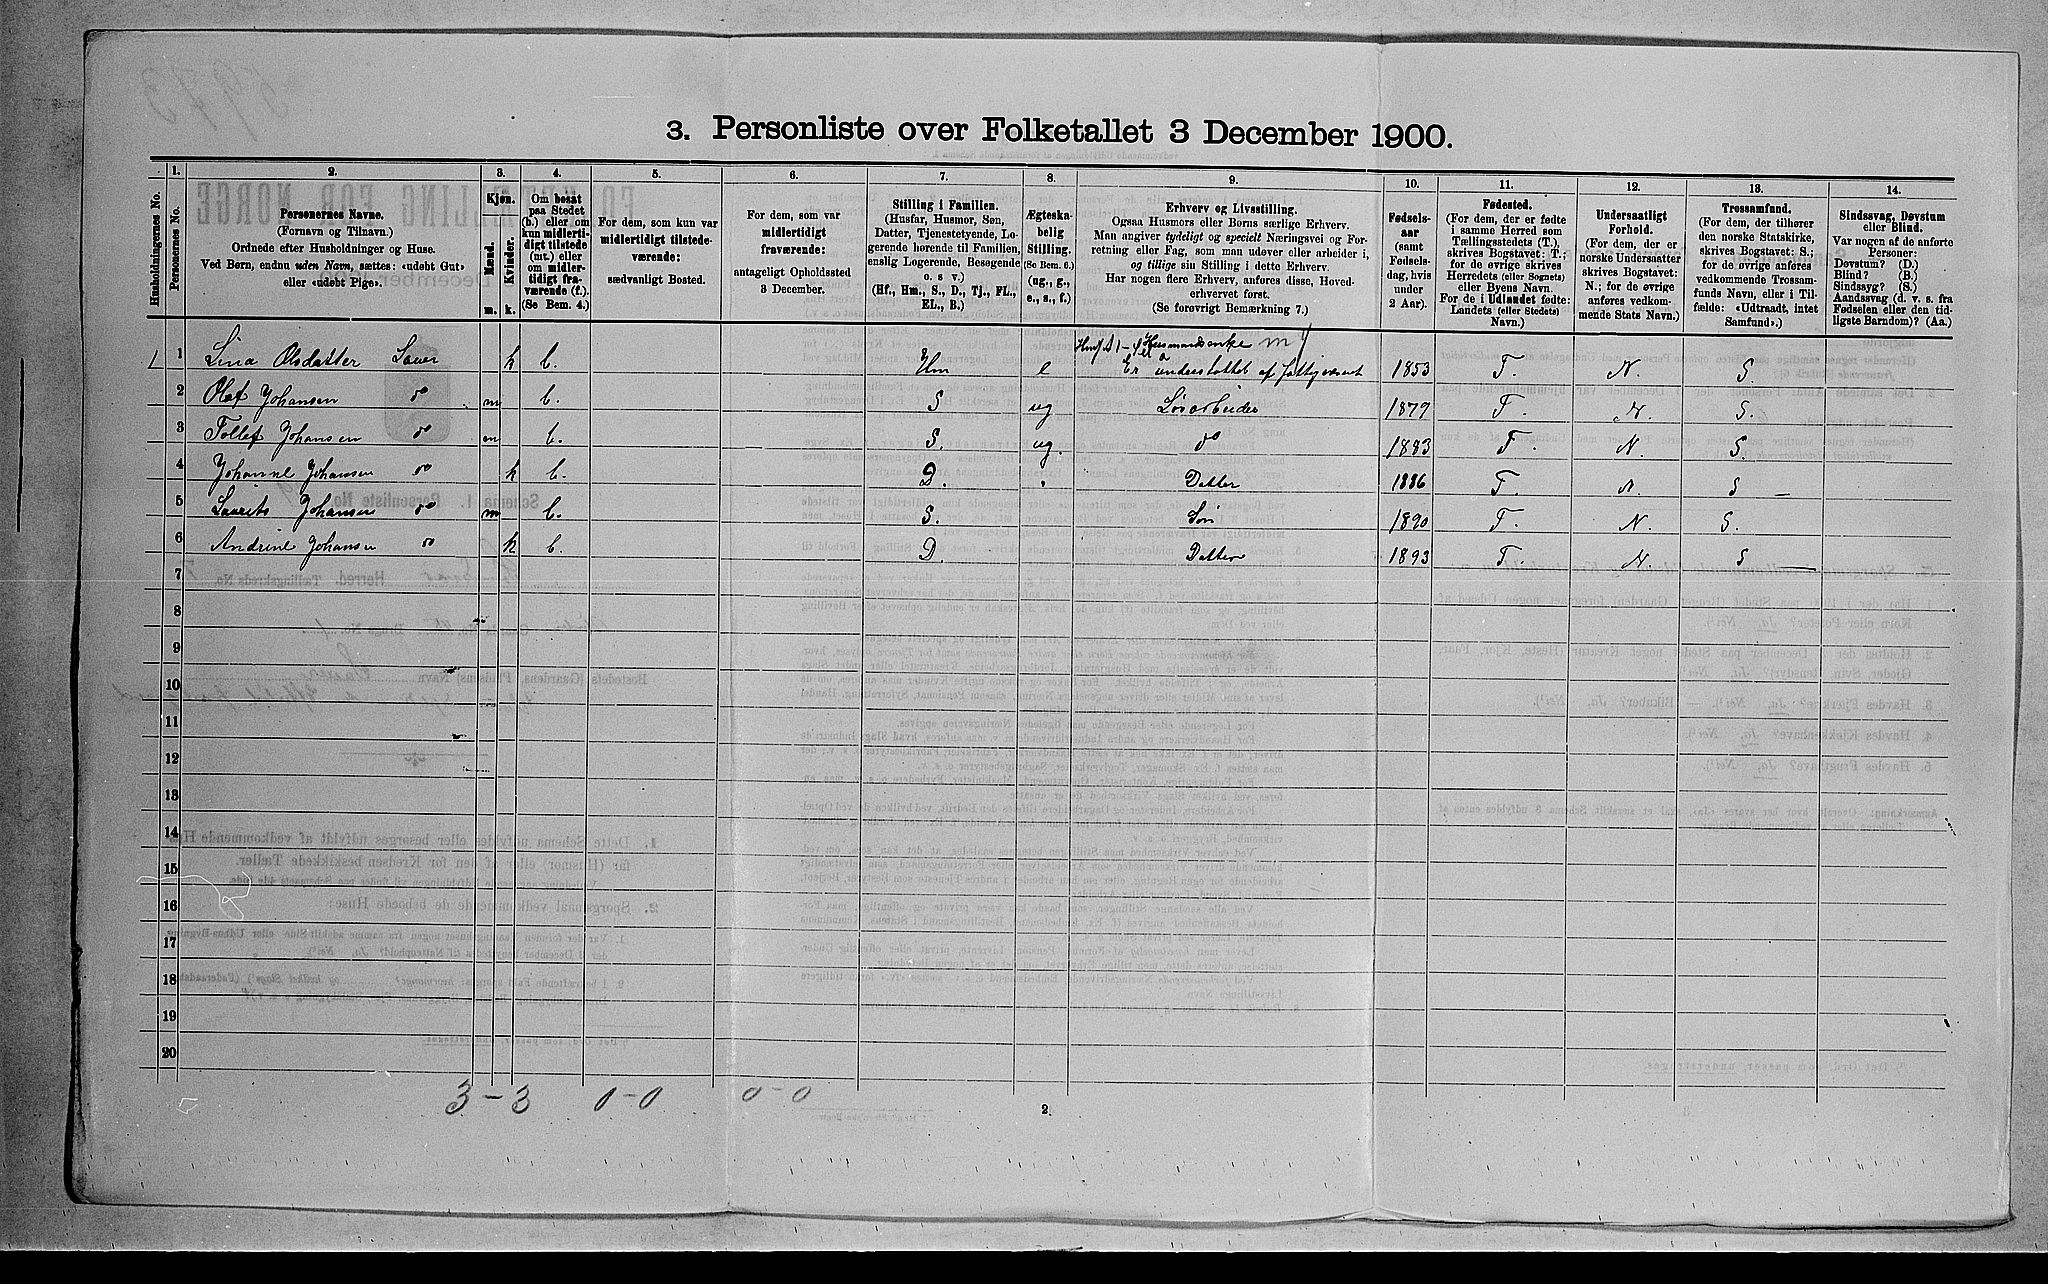 3. Personliste over Folketallet 3 December 1900.
1. 2. 3. 4. 5. 6. 7. 8. 9. 10. 11. 12. 13. 14.
Husholdningernes No.
Personernes No.
Personernes Navne.
(Fornavn og Tilnavn.)
Ordnede efter Husholdninger og Huse.
Ved Børn, endnu uden Navn, sættes: «udøbt Gut»
eller «udøbt Pige».
Kjøn.
Mænd.
Kvinder.
m. k.
Om bosat
paa Stedet
(b.) eller om
kun midlerti-
digt tilstede
(mt.) eller
om midler-
tidigt fra-
værende (f.).
(Se Bem. 4.)
For dem, som kun var
midlertidigt tilstede-
værende:
sædvanligt Bosted.
For dem, som var
midlertidigt
fraværende:
antageligt Opholdssted
3 December.
Stilling i Familien.
(Husfar, Husmor, Søn,
Datter, Tjenestetyende, Lo-
gerende hørende til Familien,
enslig Logerende, Besøgende
o. s. v.)
(Hf., Hm., S., D., Tj., FL.,
EL., B.)
Ægteska-
belig
Stilling.
(Se Bem. 6.)
(ug., g.,
e., s., f.)
Erhverv og Livsstilling.
Ogsaa Husmors eller Børns særlige Erhverv.
Man angiver tydeligt og specielt Næringsvei og For-
retning eller Fag, som man udøver eller arbeider i,
og tillige sin Stilling i dette Erhverv.
Har nogen flere Erhverv, anføres disse, Hoved-
erhvervet først.
(Se forøvrigt Bemærkning 7.)
Fødsels-
aar
(samt
Fødsels-
dag, hvis
under
2 Aar).
Fødested.
(For dem, der er fødte
i samme Herred som
Tællingsstedets (T.),
skrives Bogstavet: T.;
for de øvrige skrives
Herredets (eller Sognets)
eller Byens Navn.
For de i Udlandet fødte:
Landets (eller Stedets)
Navn.)
Undersaatligt
Forhold.
(For dem, der er
norske Undersaatter
skrives Bogstavet:
N.; for de øvrige
anføres vedkom-
mende Stats Navn.)
Trossamfund.
(For dem, der tilhører
den norske Statskirke,
skrives Bogstavet: S.;
for de øvrige anføres
vedkommende Trossam-
funds Navn, eller i Til-
fælde: «Udtraadt, intet
Samfund».)
Sindssvag, Døvstum
eller Blind.
Var nogen af de anførte
Personer:
Døvstum? (D.)
Blind? (B.)
Sindssyg? (S.)
Aandssvag (d. v. s. fra
Fødselen eller den tid-
ligste Barndom)? (Aa.)
Husmandsenke
1 1 Lina Olsdatter Sauer k b. Hm e Er understøttet af 1853 T. N. S.
2 Olaf Johansen do m b. S ug Løsarbeider 1879 T. N. S.
3 Tollef Johansen do m b. S. ug. do 1883 T. N. S.
4 Johanne Johansen do k b. D. Datter 1886 T. N. S
5 Laurits Johansen do m b. S. Søn 1890 T. N. S.
6 Andrine Johansen do k b. D. Datter 1893 T. N. S
7
8
9
10
11
12
13
14
15
16
17
18
19
20
3 - 3 0 - 0 0 - 0
2